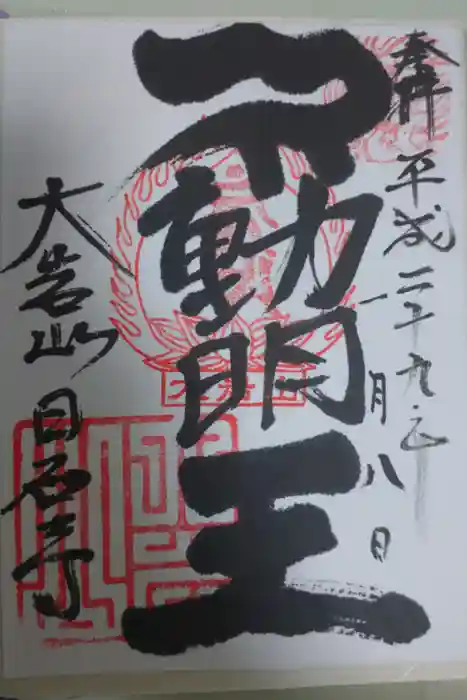 奉拝 平成二十九年
一月八日
不動明王
大岩山 日石寺
大岩山